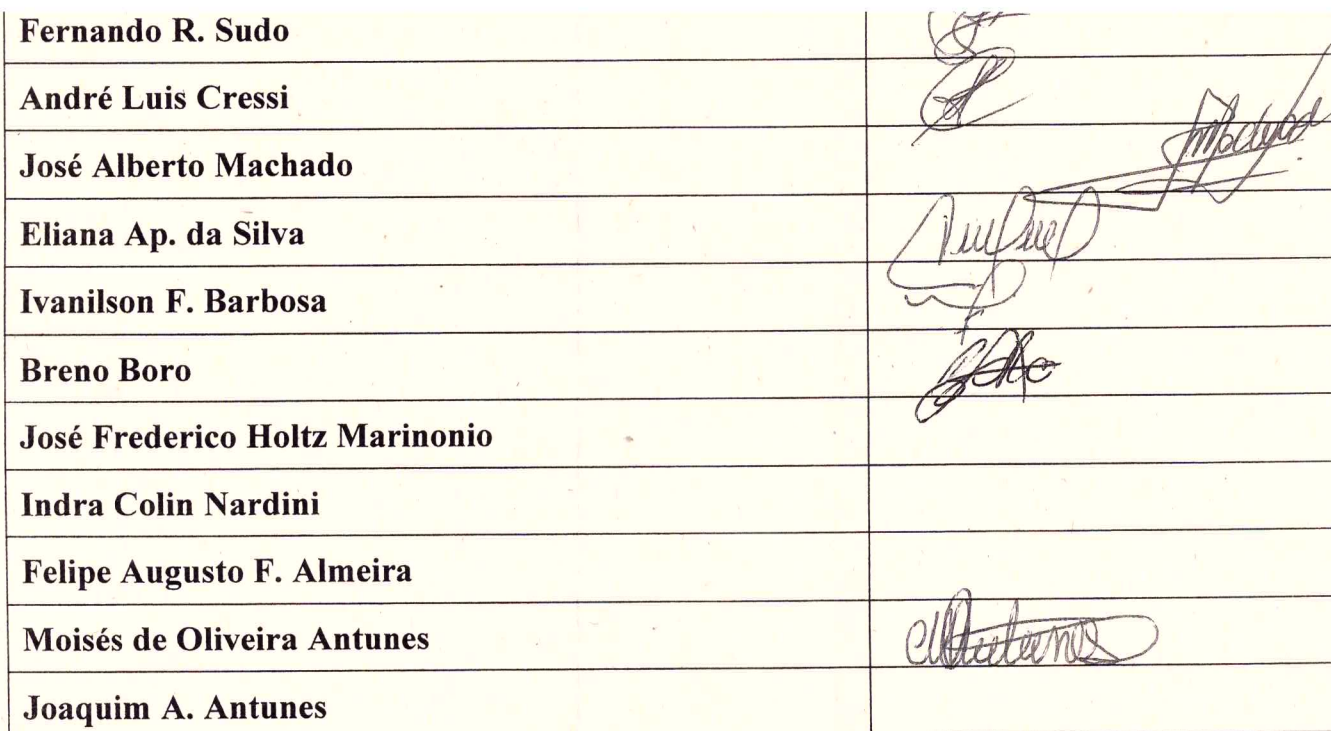 Fernando R. Sudo
André Luis Cressi
José Alberto Machado
Eliana Ap. da Silva
Ivanilson F. Barbosa
Breno Boro
José Frederico Holtz Marinonio
Indra Colin Nardini
Felipe Augusto F. Almeira
Moisés de Oliveira Antunes
Joaquim A. Antunes